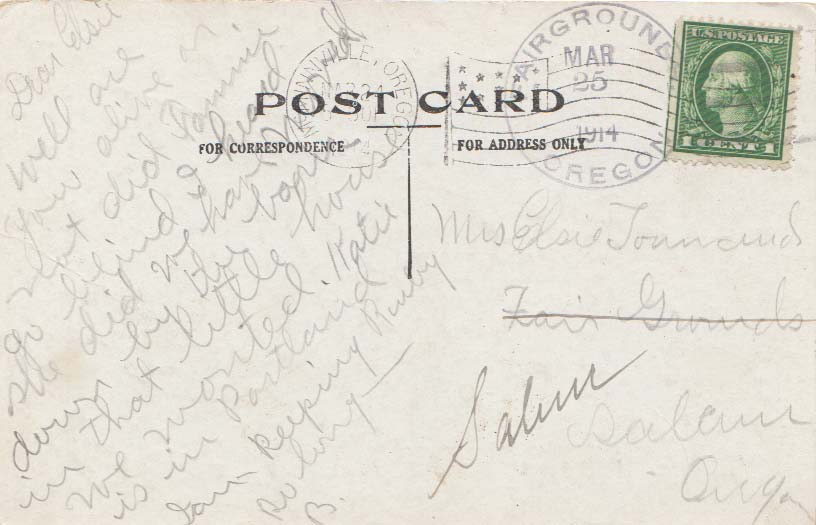 POST CARD
FOR CORRESPONDENCE
FOR ADDRESS ONLY
McMINNVILLE, OREGON
FAIRGROUNDS
MAR
25
1914
OREGON
U.S. POSTAGE
1 CENT 1
Dear Elsie
Well are
you alive or
not did Tommie
go blind I heard
she did we have moved
down by the
in that little house
we wanted. Katie
is in Portland
I am keeping Ruby
so long
B.
Mrs Elsie Townsend
Fair Grounds
Salem
Salem